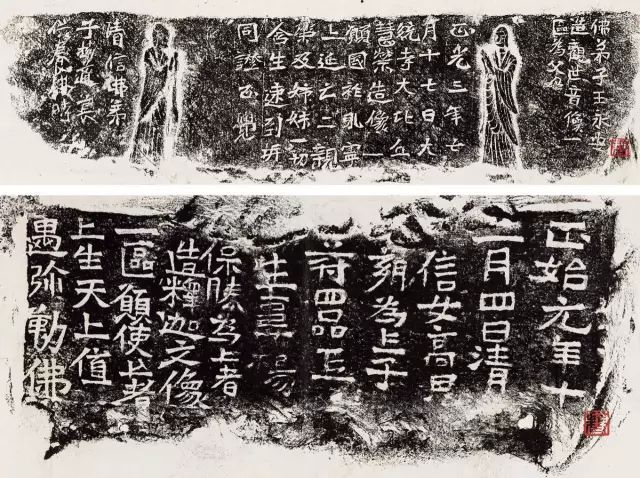 佛弟子王永安
造觀世音像一
區為父母
正光三年七
月十七日大
統寺大比丘
慧榮造像一
願國祚永寧
上延亡二親
眾及姊妹一切
含生速到
同證正覺
清信佛弟
子
正始元年十
一月四日清
信女高思
鄉為亡子
苻四品王
生尋陽
保勝為亡者
造釋迦文像
一區願使亡者
上生天上值
遇弥勒佛